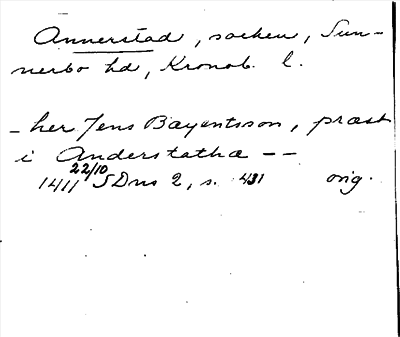 Annerstad, socken, Sun-
nerbo hd, Kronob. l.
- her Jens Bayentsson, præst
i Anderstatha --
1411 22/10 SDns 2, s. 431 orig.